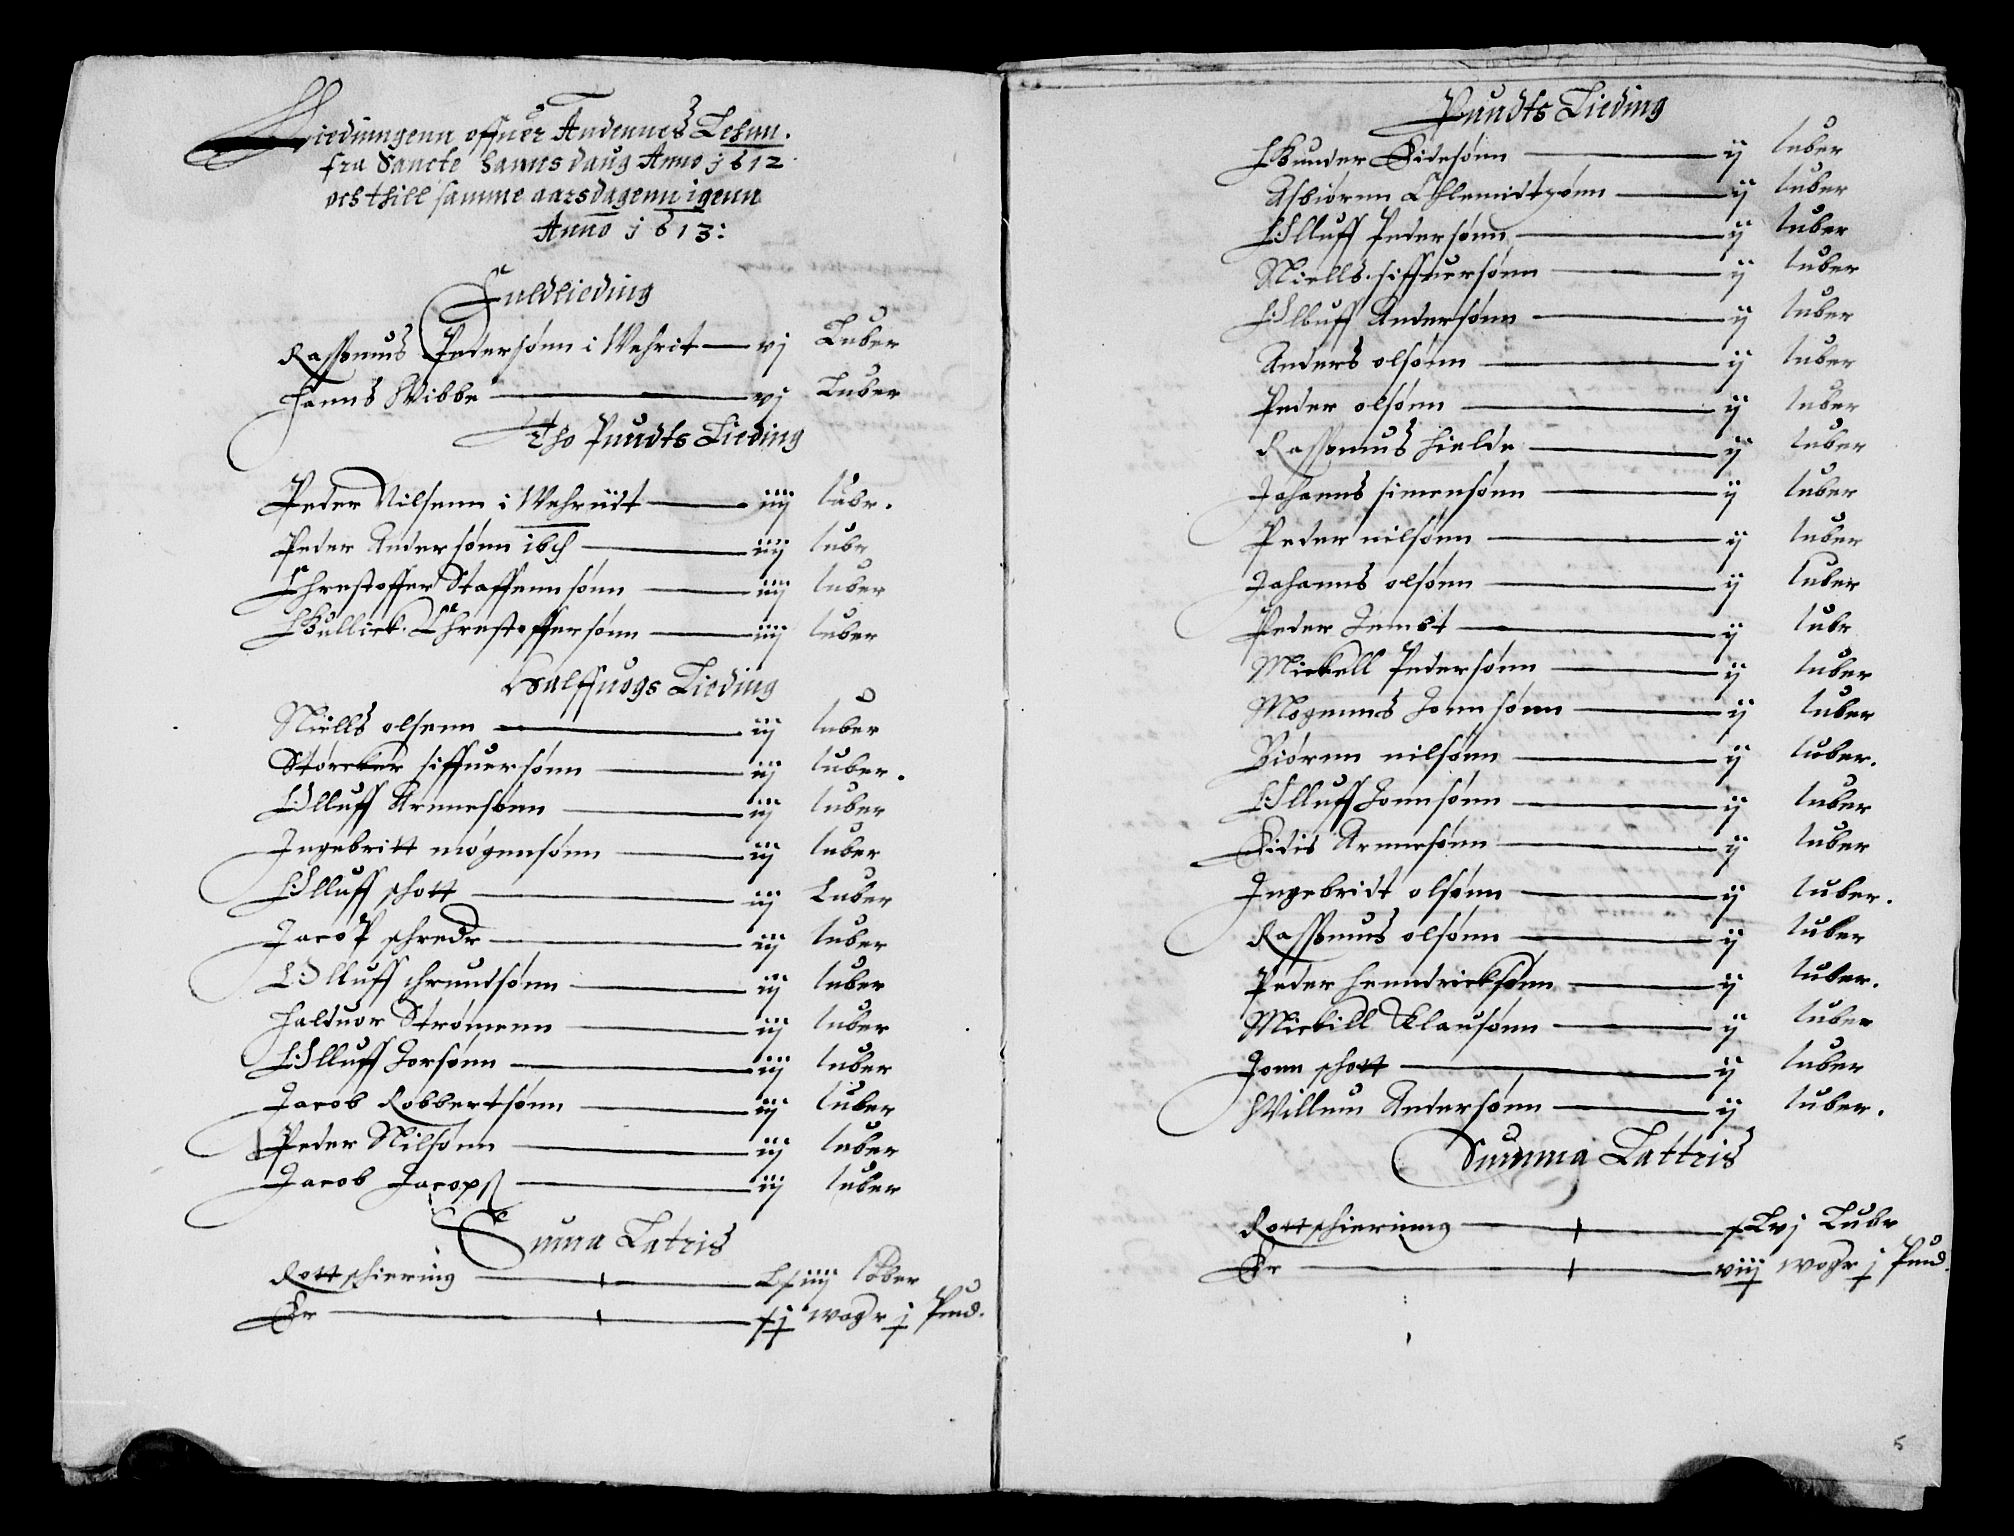 Liedinngenn offuer Andennes Lehnn.
fra Sancte Hanns daug Anno j612
och thill samme aarsdagenn igenn
Anno j613:
Fuldlieding
Rassmus Pedersønn i Wehrit — vj Luber
Hanns Wibbe — vj Luber
Tho Pundts Lieding
Peder Nilsenn i Wehriidt — iiij lubr.
Peder Andersønn ibid — iiij lubr
Chrestoffer Staffennsønn — iiij luber
Gullick Chrestoffersønn — iiij luber
Halffuogs Lieding
Niells olsenn — iij luber
Størcker siffuersønn — iij luber.
Olluff Arnnesønn — iij luber
Ingebritt mogensønn — iij luber
Olluff schott — iij Luber
Jacop schredr — iij luber
Olluff chrundsønn — iij luber
Halduor Strømenn — iij luber
Olluff Jorsønn — iij luber
Jacob Robbertsønn — iij luber
Peder Nilsønn — iij luber
Jacob Jacopß — iij luber
Suma Latris
Rottschiering — Lxiiij luber
Er — xj wogr j Pund.
Pundts Lieding
Gunder Eidesønn — ij luber
Asbiørnn Chlemidtzønn — ij luber
Olluff Pedersønn — ij luber
Niells siffuersønn — ij luber
Olluff Andersønn — ij luber
Anders olsønn — ij luber
Peder olsønn — ij luber
Rassmus hielde — ij luber
Johanns simensønn — ij luber
Peder nilsønn — ij luber
Johanns olsønn — ij luber
Peder Jembt — ij lubr
Mickell Pedersønn — ij luber
Mogenns Jonnsønn — ij luber
Biørnn nilsønn — ij luber.
Olluff Jonnsønn — ij luber
Eidis Arnnesønn — ij luber
Ingebridt olsønn — ij luber.
Rassmus olsønn — ij luber
Peder Henndricksønn — ij luber.
Mickill Klausønn — ij luber
Jonn schott — ij luber
Willum Andersønn — ij luber.
Summa Lattris
Rottschierinng — xLvj Lubr
Er — viij wogr j Pund.
5